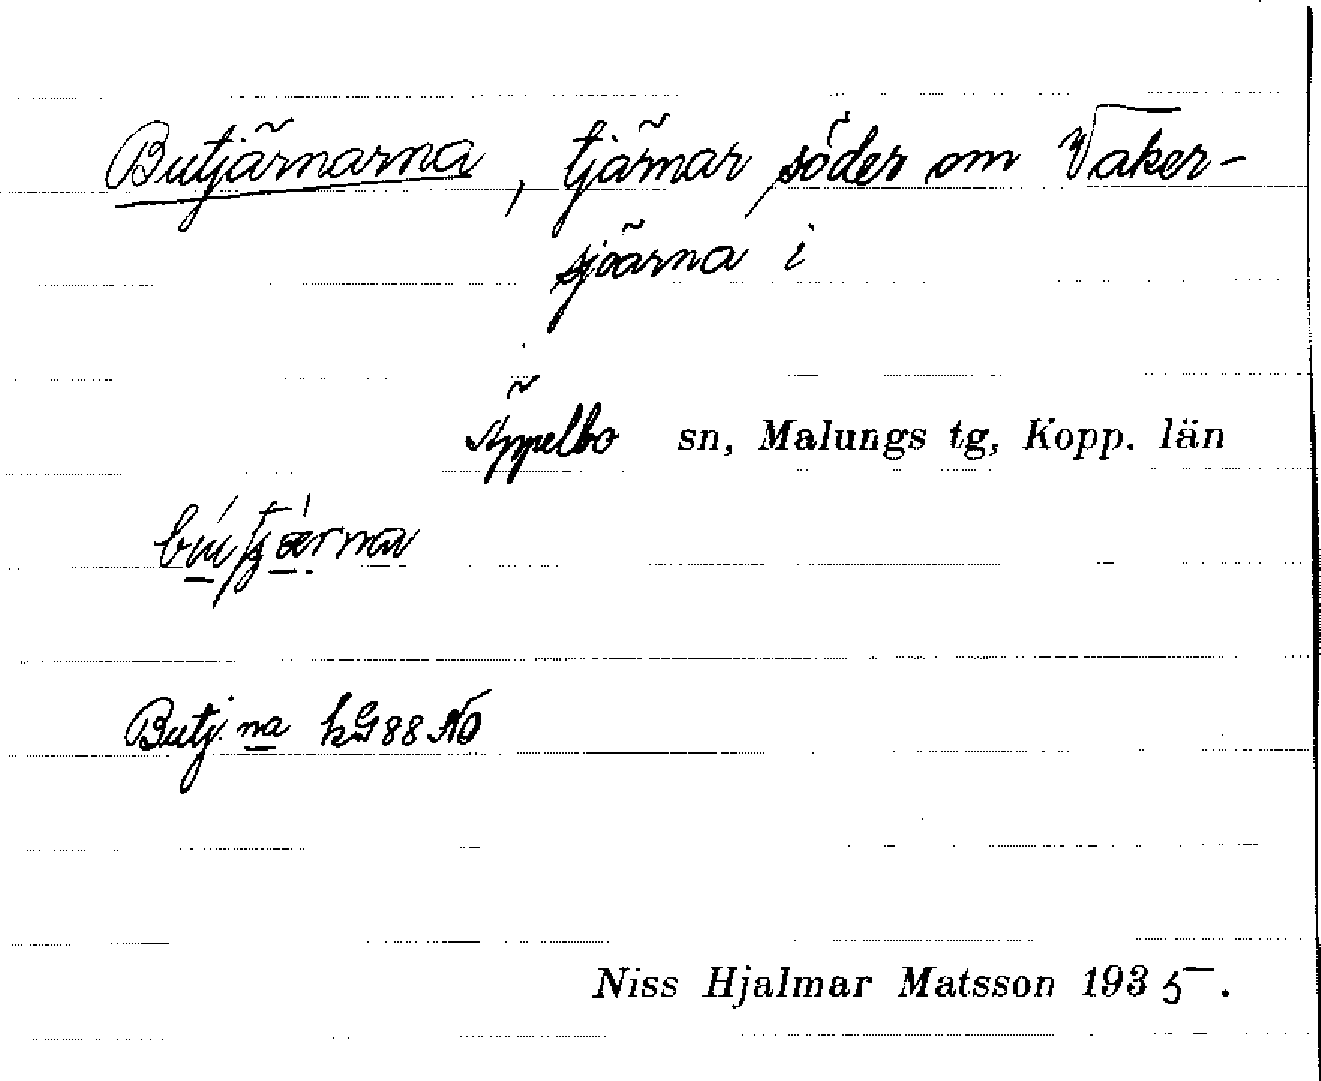 Butjärnarna, tjärnar söder om Vaker-
sjöarna i
Äppelbo sn, Malungs tg, Kopp. län
Butj.na kG 88 NO
Niss Hjalmar Matsson 1935.